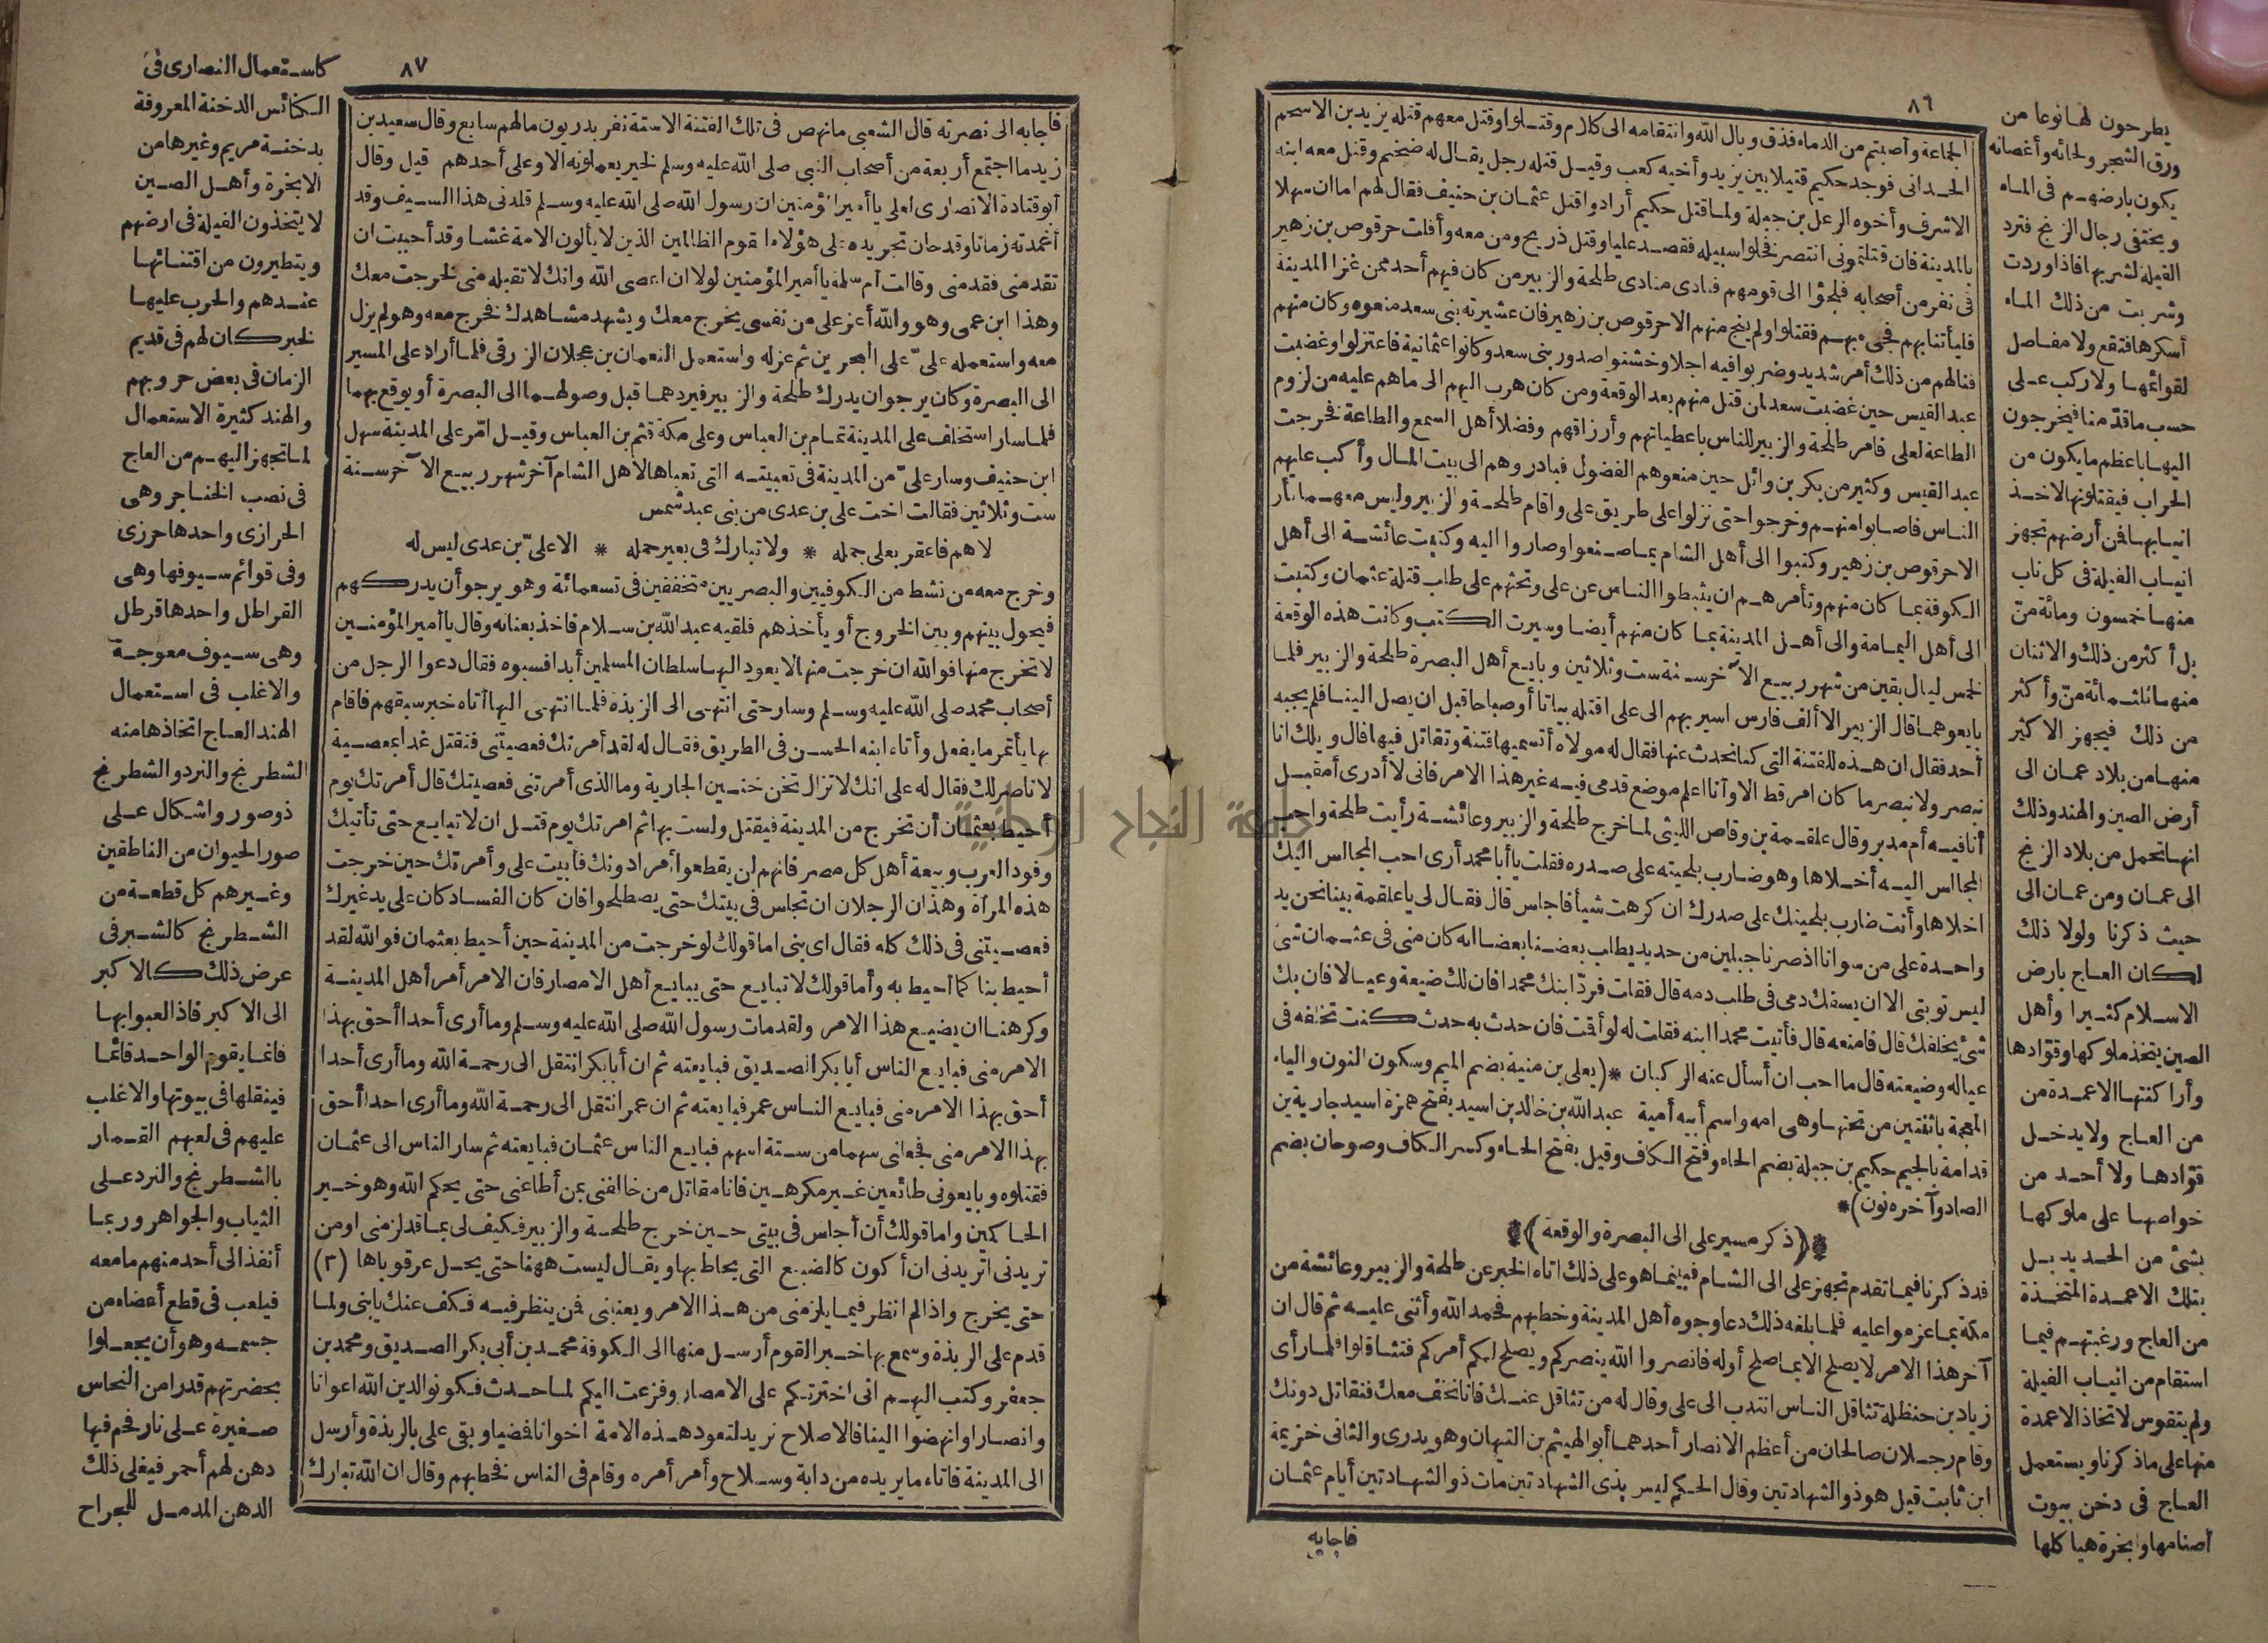 ٨٦
الجماعة وأصبتم من الدماء فذق وبال الله وانتقامه الى كلام وقتلوا وقتل معهم قتله يزيد بن الاسحم
الحدانى فوجد حكيم قتيلا بين يزيد وأخيه كعب وقيل قتله رجل يقال له ضخيم وقتل معه ابنه
الاشرف وأخوه الرعل بن جبلة ولما قتل حكيم أرادوا قتل عثمان بن حنيف فقال لهم اما ان سهلا
بالمدينة فان قتلتمونى انتصر فخلوا سبيله فقصد عليا وقتل ذريح ومن معه وأفلت حرقوص بن زهير
فى نفر من أصحابه فلجؤا الى قومهم فنادى منادى طلحة والزبير من كان فيهم أحد ممن غزا المدينة
فليأتنا بهم فجىء بهم فقتلوا ولم ينج منهم الا حرقوص بن زهير فان عشيرته بنى سعد منعوه وكان منهم
فنالهم من ذلك أمر شديد وضربوا فيه اجلا وخشنوا صدور بنى سعد وكانوا عثمانية فاعتزلوا وغضبت
عبد القيس حين غضبت سعد لمن قتل منهم بعد الوقعة ومن كان هرب اليهم الى ما هم عليه من لزوم
الطاعة لعلى فامر طلحة والزبير للناس باعطياتهم وأرزاقهم وفضلا أهل السمع والطاعة فخرجت
عبد القيس وكثير من بكر بن وائل حين منعوهم الفضول فبادروهم الى بيت المال وأكب عليهم
الناس فاصابوا منهم وخرجوا حتى نزلوا على طريق على واقام طلحة والزبير وليس معهما ثأر
الا حرقوص بن زهير وكتبوا الى أهل الشام بما صنعوا وصاروا اليه وكتبت عائشة الى أهل
الكوفة بما كان منهم وتأمرهم ان يثبطوا الناس عن على وتحثهم على طلب قتلة عثمان وكتبت
الى أهل اليمامة والى أهل المدينة بما كان منهم أيضا وسيرت الكتب وكانت هذه الوقعة
لخمس ليال بقين من شهر ربيع الآخر سنة ست وثلاثين وبايع أهل البصرة طلحة والزبير فلما
بايعوهما قال الزبير الا ألف فارس اسير بهم الى على اقتله بياتا أو صباحا قبل ان يصل الينا فلم يجبه
أحد فقال ان هذه للفتنة التى كنا نحدث عنها فقال له مولاه أتسميها فتنة وتقاتل فيها قال ويلك انا
نبصر ولا نبصر ما كان امر قط الا وأنا اعلم موضع قدمى فيه غير هذا الامر فانى لا أدرى أمقبل
أنا فيه أم مدبر وقال علقمة بن وقاص الليثى لما خرج طلحة والزبير وعائشة رأيت طلحة واحب
المجالس اليه أخلاها وهو ضارب بلحيته على صدره فقلت يا أبا محمد أرى احب المجالس اليك
اخلاها وأنت ضارب بلحيتك على صدرك ان كرهت شيأ فاجلس قال فقال لى يا علقمة بينا نحن يد
واحدة على من سوانا اذ صرنا جبلين من حديد يطلب بعضنا بعضا انه كان منى فى عثمان شئ
ليس توبتى الا ان يسفك دمى فى طلب دمه قال فقلت فردّ ابنك محمدا فان لك ضيعة وعيالا فان يك
شئ يخلفك قال فامنعه قال فأتيت محمدا ابنه فقلت له لو أقمت فان حدث به حدث كنت تخلفه فى
عياله وضيعته قال ما احب ان أسأل عنه الركبان * (يعلى بن منية بضم الميم وسكون النون والياء
المعجمة باثنتين من تحتها وهى امه واسم أبيه أمية عبد الله بن خالد بن اسيد بفتح همزة اسيد جارية بن
قدامة بالجيم حكيم بن جبلة بضم الحاء وفتح الكاف وقيل بفتح الحاء وكسر الكاف وصوحان بضم
الصاد وآخره نون) *
* (ذكر مسير على الى البصرة والوقعة) *
قد ذكرنا فيما تقدم تجهز على الى الشام فبينما هو على ذلك اتاه الخبر عن طلحة والزبير وعائشة من
مكة بما عزموا عليه فلما بلغه ذلك دعا وجوه أهل المدينة وخطبهم فحمد الله وأثنى عليه ثم قال ان
آخر هذا الامر لا يصلح الا بما صلح أوله فانصروا الله ينصركم ويصلح لكم أمركم فتثاقلوا فلما رأى
زياد بن حنظلة تثاقل الناس انتدب الى على وقال له من تثاقل عنك فانا نخف معك فنقاتل دونك
وقام رجلان صالحان من أعظم الانصار أحدهما أبو الهيثم بن التيهان وهو بدرى والثانى خزيمة
ابن ثابت قيل هو ذو الشهادتين وقال الحكم ليس بذى الشهادتين مات ذو الشهادتين أيام عثمان
فاجابه
يطرحون لها نوعا من
ورق الشجر ولحائه وأغصانه
يكون بارضهم فى الماء
ويختفى رجال الزنج فترد
الفيلة لشربها فاذا وردت
وشربت من ذلك الماء
أسكرها فتقع ولا مفاصل
لقوائمها ولا ركب على
حسب ما قدّمنا فيخرجون
اليها باعظم ما يكون من
الحراب فيقتلونها لاخذ
انيابها فمن أرضهم تجهز
انياب الفيلة فى كل ناب
منها خمسون ومائة منّ
بل أكثر من ذلك والاثنان
منها ثلثمائة منّ وأكثر
من ذلك فيجهز الاكثر
منها من بلاد عمان الى
أرض الصين والهند وذلك
انها تحمل من بلاد الزنج
الى عمان ومن عمان الى
حيث ذكرنا ولولا ذلك
لكان العاج بارض
الاسلام كثيرا وأهل
الصين يتخذ ملوكها وقوّادها
وأراكنتها الاعمدة من
من العاج ولا يدخل
قوّادها ولا أحد من
خواصها على ملوكها
بشئ من الحديد بل
بتلك الاعمدة المتخذة
من العاج ورغبتهم فيما
استقام من انياب الفيلة
ولم يتقوس لاتخاذ الاعمدة
منها على ما ذكرنا ويستعمل
العاج فى دخن بيوت
أصنامها وابخرة هياكلها
٨٧
فاجابه الى نصرته قال الشعبى ما نهض فى تلك الفتنة الا ستة نفر بدريون ما لهم سابع وقال سعيد بن
زيد ما اجتمع أربعة من أصحاب النبى صلى الله عليه وسلم لخير يعملونه الا وعلى أحدهم قيل وقال
أبو قتادة الانصارى لعلى يا أمير المؤمنين ان رسول الله صلى الله عليه وسلم قلدنى هذا السيف وقد
أغمدته زمانا وقد حان تجريده على هؤلاء القوم الظالمين الذين لا يألون الامة غشا وقد أحببت ان
تقدمنى فقدمنى وقالت أم سلمة يا أمير المؤمنين لولا ان اعصى الله وانك لا تقبله منى لخرجت معك
وهذا ابن عمى وهو والله أعز على من نفسى يخرج معك ويشهد مشاهدك فخرج معه وهو لم يزل
معه واستعمله علىّ على البحرين ثم عزله واستعمل النعمان بن عجلان الزرقى فلما أراد على المسير
الى البصرة وكان يرجو ان يدرك طلحة والزبير فيردهما قبل وصولهما الى البصرة أو يوقع بهما
فلما سار استخلف على المدينة تمام بن العباس وعلى مكة قثم بن العباس وقيل امّر على المدينة سهل
ابن حنيف وسار علىّ من المدينة فى تعبيته التى تعباها لاهل الشام آخر شهر ربيع الآخر سنة
ست وثلاثين فقالت اخت على بن عدى من بنى عبد شمس
لاهم فاعقر بعلى جمله * ولا تبارك فى بعير حمله * الا علىّ بن عدى ليس له
وخرج معه من نشط من الكوفيين والبصريين متخففين فى تسعمائة وهو يرجو أن يدركهم
فيحول بينهم وبين الخروج أو يأخذهم فلقيه عبد الله بن سلام فاخذ بعنانه وقال يا أمير المؤمنين
لا تخرج منها فوالله ان خرجت منها لا يعود اليها سلطان المسلمين أبدا فسبوه فقال دعوا الرجل من
أصحاب محمد صلى الله عليه وسلم وسار حتى انتهى الى الربذة فلما انتهى اليها أتاه خبر سبقهم فاقام
بها يأتمر ما يفعل وأتاه ابنه الحسن فى الطريق فقال له لقد أمرتك فعصيتنى فتقتل غدا بمعصية
لا ناصر لك فقال له على انك لا تزال تخن خنين الجارية وما الذى أمرتنى فعصيتك قال أمرتك يوم
أحيط بعثمان أن تخرج من المدينة فيقتل ولست بها ثم امرتك يوم قتل ان لا تبايع حتى تأتيك
وفود العرب وبيعة أهل كل مصر فانهم لن يقطعوا أمرا دونك فأبيت على وأمرتك حين خرجت
هذه المرأة وهذان الرجلان ان تجلس فى بيتك حتى يصطلحوا فان كان الفساد كان على يد غيرك
فعصيتنى فى ذلك كله فقال اى بنى اما قولك لو خرجت من المدينة حين أحيط بعثمان فوالله لقد
أحيط بنا كما أحيط به وأما قولك لا تبايع حتى يبايع أهل الامصار فان الامر أمر أهل المدينة
وكرهنا ان يضيع هذا الامر ولقد مات رسول الله صلى الله عليه وسلم وما أرى أحدا أحق بهذا
الامر منى فبايع الناس أبا بكر الصديق فبايعته ثم ان أبا بكر انتقل الى رحمة الله وما أرى أحدا
أحق بهذا الامر منى فبايع الناس عمر فبايعته ثم ان عمر انتقل الى رحمة الله وما أرى احدا أحق
بهذا الامر منى فجعلنى سهما من ستة اسهم فبايع الناس عثمان فبايعته ثم سار الناس الى عثمان
فقتلوه وبايعونى طائعين غير مكرهين فانا مقاتل من خالفنى بمن أطاعنى حتى يحكم الله وهو خير
الحاكمين واما قولك أن أجلس فى بيتى حين خرج طلحة والزبير فكيف لى بما قد لزمنى او من
تريدنى أتريدنى ان أكون كالضبع التى يحاط بها ويقال ليست ههنا حتى يحل عرقوباها (٣)
حتى يخرج واذا لم انظر فيما يلزمنى من هذا الامر ويعنينى فمن ينظر فيه فكف عنك يا بنى ولما
قدم على الربذة وسمع بها خبر القوم أرسل منها الى الكوفة محمد بن أبى بكر الصديق ومحمد بن
جعفر وكتب اليهم انى اخترتكم على الامصار وفزعت اليكم لما حدث فكونوا لدين الله اعوانا
وانصارا وانهضوا الينا فالاصلاح نريد لتعود هذه الامة اخوانا فمضيا وبقى على بالربذة وأرسل
الى المدينة فاتاه ما يريده من دابة وسلاح وأمر أمره وقام فى الناس فخطبهم وقال ان الله تبارك
كاستعمال النصارى فى
الكنائس الدخنة المعروفة
بدخنة مريم وغيرها من
الابخرة وأهل الصين
لا يتخذون الفيلة فى ارضهم
ويتطيرون من اقتنائها
عندهم والحرب عليها
لخبر كان لهم فى قديم
الزمان فى بعض حروبهم
والهند كثيرة الاستعمال
لما تجهز اليهم من العاج
فى نصب الخناجر وهى
الحرازى واحدها حرزى
وفى قوائم سيوفها وهى
القراطل واحدها قرطل
وهى سيوف معوجة
والاغلب فى استعمال
الهند العاج اتخاذها منه
الشطرنج والنرد والشطرنج
ذو صور واشكال على
صور الحيوان من الناطقين
وغيرهم كل قطعة من
الشطرنج كالشبر فى
عرض ذلك كالاكبر
الى الاكبر فاذا لعبوا بها
فانما يقوم الواحد قائما
فينقلها فى بيوتها والاغلب
عليهم فى لعبهم القمار
بالشطرنج والنرد على
الثياب والجواهر وربما
أنفذ الى أحد منهم ما معه
فيلعب فى قطع أعضاء من
جسمه وهو أن يجعلوا
بحضرتهم قدرا من النحاس
صغيرة على نار فحم فيها
دهن لهم أحمر فيغلى ذلك
الدهن المدمل للجراح
جامعة النجاح الوطنية